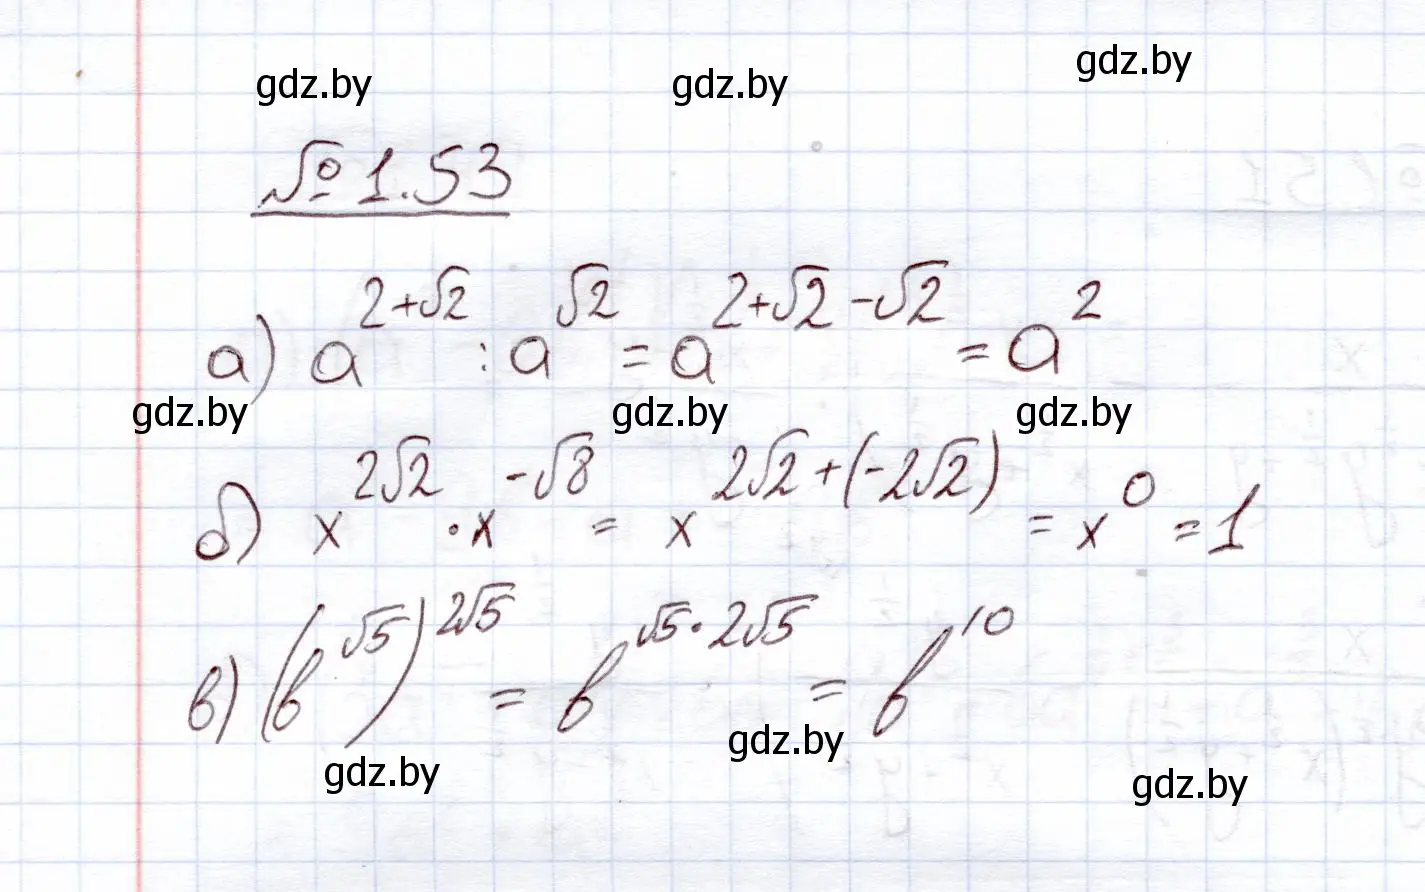 gdz.by gdz.by gdz.by
№ 1.53
а) a^{2+√2} : a^{√2} = a^{2+√2-√2} = a^2
gdz.by gdz.by gdz.by
б) x^{2√2} · x^{-√8} = x^{2√2+(-2√2)} = x^0 = 1
в) (b^{√5})^{2√5} = b^{√5·2√5} = b^{10}
gdz.by gdz.by gdz.by